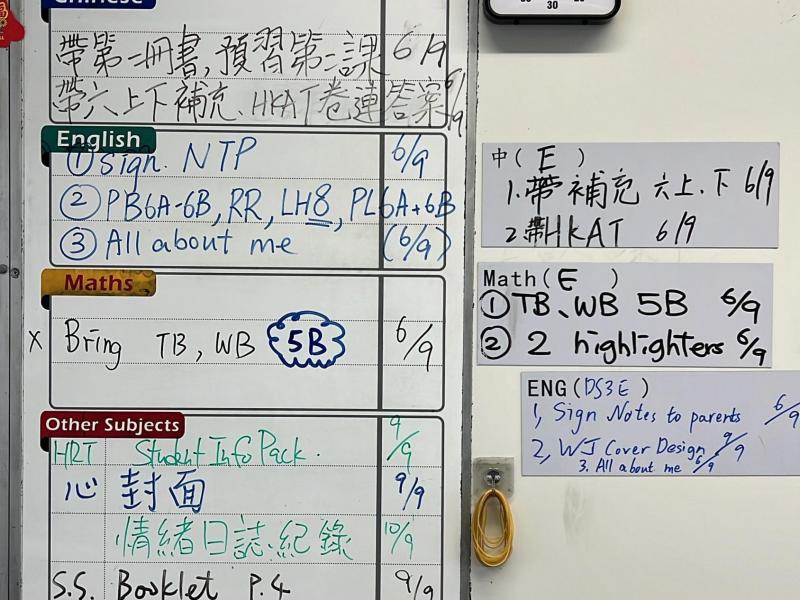 30
Chinese
帶第二冊書,預習第二課 6/9
帶六上下補充、HKAT卷連答案 6/9
English
① Sign NTP 6/9
② PB6A-6B, RR, LH8, PL6A+6B
③ All about me (6/9)
Maths
x Bring TB, WB 5B 6/9
Other Subjects
HRT Student Info Pack. 9/9
心 封面 9/9
情緒日誌紀錄 10/9
S.S. Booklet P.4 9/9
中( E )
1.帶補充 六上.下 6/9
2.帶HKAT 6/9
Math( E )
① TB、WB 5B 6/9
② 2 highlighters 6/9
ENG(DS3E )
1, Sign Notes to parents 6/9
2, WJ Cover Design 9/9
3. All about me 6/9